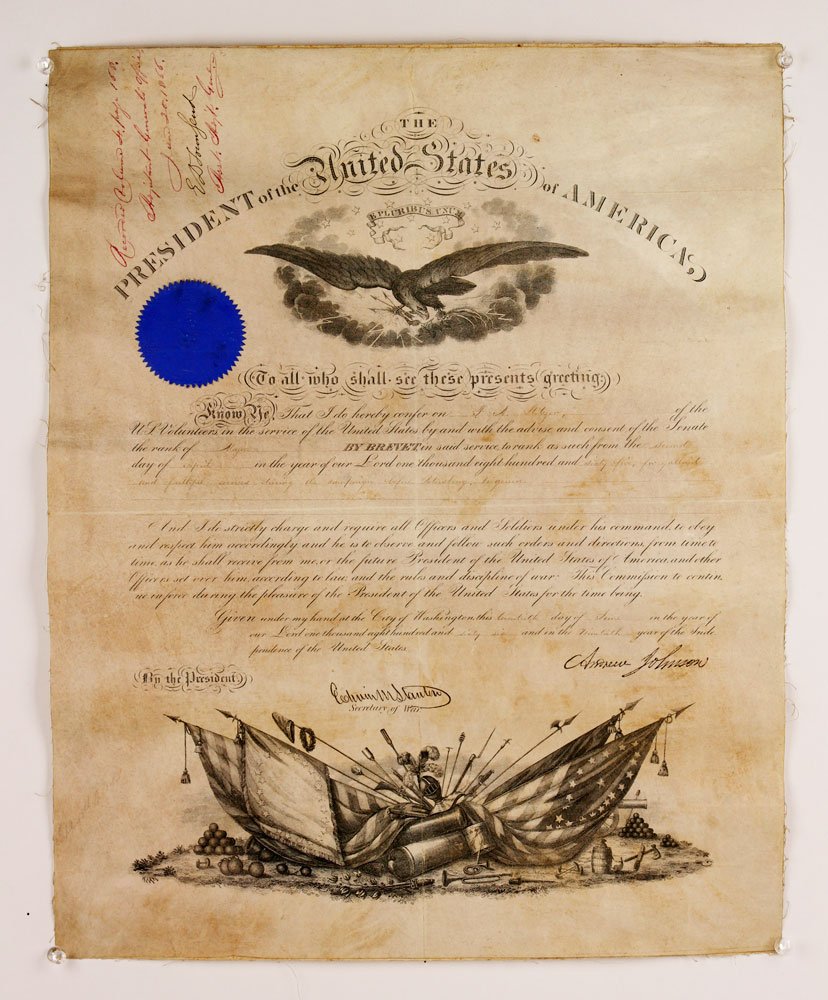 Recorded Volume 4, Page 158.
Adjutant General's Office
June 20, 1866.
E D Townsend
Asst. Adjt. Genl.
THE
PRESIDENT of the United States of AMERICA,
E PLURIBUS UNUM
To all who shall see these presents greeting:
Know Ye, That I do hereby confer on of the
U.S. Volunteers in the service of the United States by and with the advise and consent of the Senate
the rank of Major BY BREVET in said service to rank as such from the second
day of April in the year of our Lord one thousand eight hundred and sixty five, for gallant
and faithful services during the campaign before Petersburg, Virginia
And I do strictly charge and require all Officers and Soldiers under his command to obey
and respect him accordingly and he is to observe and follow such orders and directions, from time to
time as he shall receive from me, or the future President of the United States of America, and other
Officers set over him, according to law, and the rules and discipline of war. This Commission to contin
ue in force during the pleasure of the President of the United States for the time being.
Given under my hand at the City of Washington this twentieth day of June in the year of
our Lord one thousand eight hundred and sixty and in the Ninetieth year of the Inde
pendence of the United States.
Andrew Johnson
By the President,
Edwin M Stanton
Secretary of War